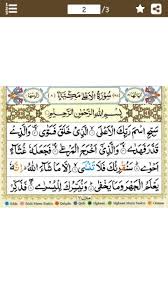 2 /3
سُوْرَةُ الْاَعْلٰى مَكِّيَّةٌ
بِسْمِ اللّٰهِ الرَّحْمٰنِ الرَّحِيْمِ
سَبِّحِ اسْمَ رَبِّكَ الْاَعْلَى ۙ الَّذِيْ خَلَقَ فَسَوّٰى ۙ وَالَّذِيْ
قَدَّرَ فَهَدٰى ۙ وَالَّذِيْٓ اَخْرَجَ الْمَرْعٰى ۙ فَجَعَلَهٗ غُثَآءً
اَحْوٰى ؕ سَنُقْرِئُكَ فَلَا تَنْسٰٓى ۙ اِلَّا مَا شَآءَ اللّٰهُ ؕ اِنَّهٗ
يَعْلَمُ الْجَهْرَ وَمَا يَخْفٰى ؕ وَنُيَسِّرُكَ لِلْيُسْرٰى ۚ فَذَكِّرْ